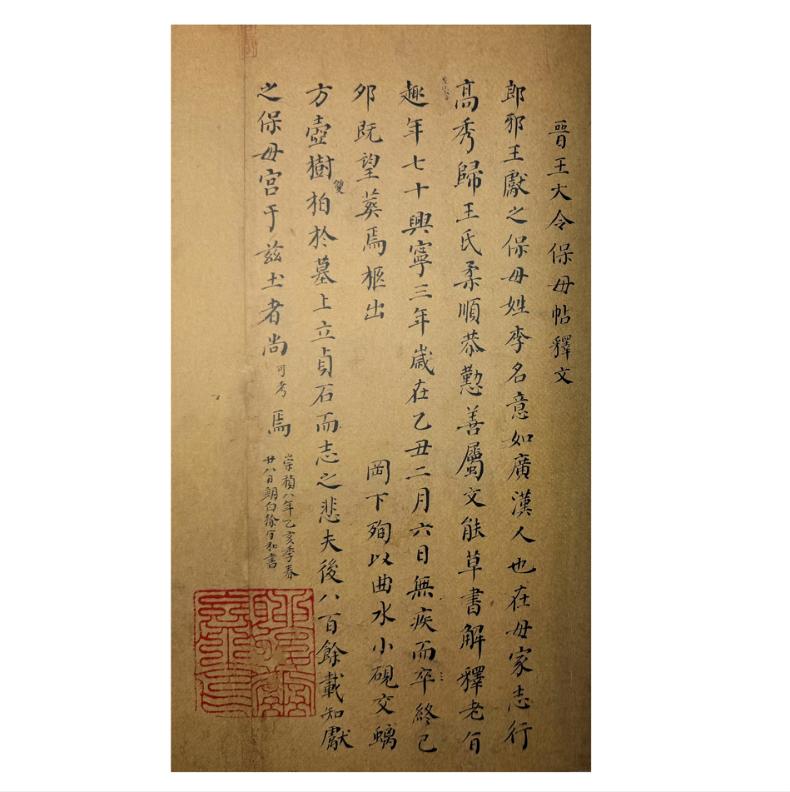 晉王大令保母帖釋文
郎邪王獻之保母姓李名意如廣漢人也在母家志行
高秀歸王氏柔順恭懃善屬文能草書解釋老旨
趣年七十興寧三年歲在乙丑二月六日無疾而卒終已
夘既望葬焉柩出 岡下殉以曲水小硯交螭
方壺樹雙柏於墓上立貞石而志之悲夫後八百餘載知獻
之保母宮于茲土者尚可考焉
崇禎八年乙亥季春
廿八日朝白徐守和書